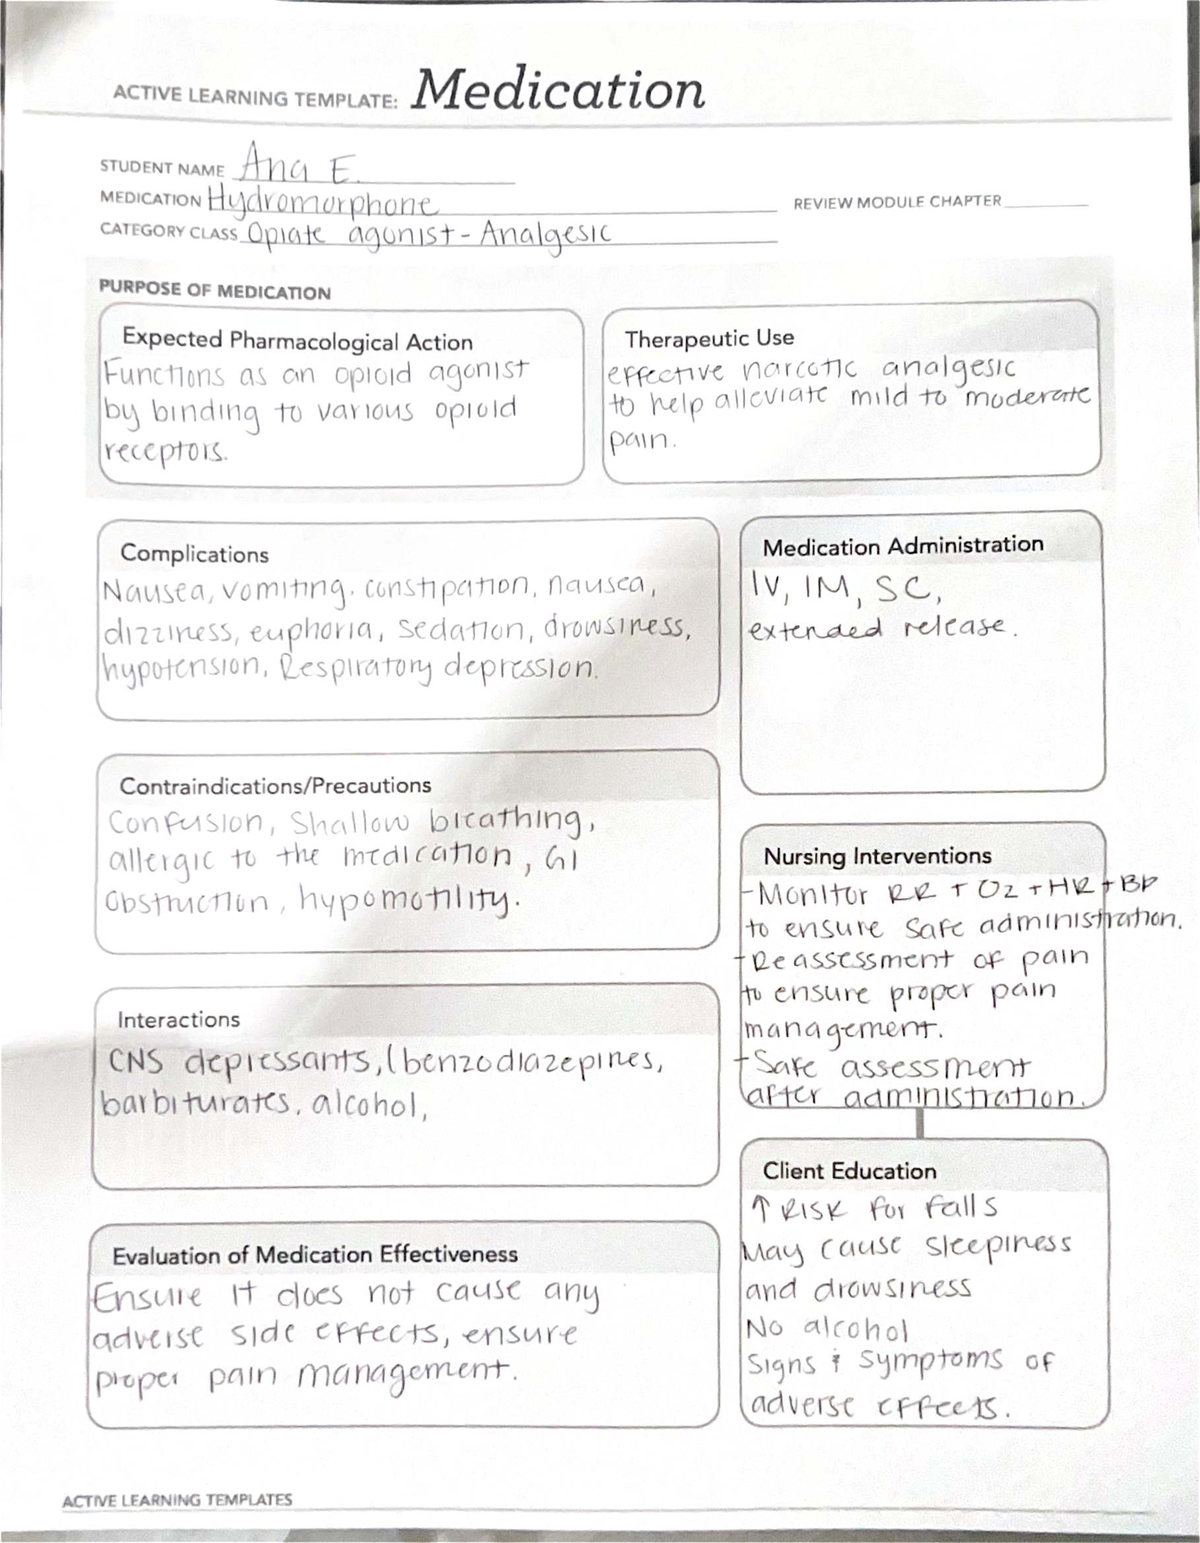 ACTIVE LEARNING TEMPLATE: Medication
STUDENT NAME Ana E.
MEDICATION Hydromorphone
REVIEW MODULE CHAPTER
CATEGORY CLASS Opiate agonist - Analgesic
PURPOSE OF MEDICATION
Expected Pharmacological Action
Functions as an opioid agonist
by binding to various opioid
receptors.
Therapeutic Use
effective narcotic analgesic
to help alleviate mild to moderate
pain.
Complications
Nausea, vomiting. constipation, nausea,
dizziness, euphoria, sedation, drowsiness,
hypotension, Respiratory depression.
Medication Administration
IV, IM, SC,
extended release.
Contraindications/Precautions
Confusion, Shallow breathing,
allergic to the medication, GI
Obstruction, hypomotility.
Nursing Interventions
-Monitor RR + O2 + HR + BP
to ensure safe administration.
-Reassessment of pain
to ensure proper pain
management.
-Safe assessment
after administration.
Interactions
CNS depressants, (benzodiazepines,
barbiturates. alcohol,
Client Education
↑ RISK for falls
May cause sleepiness
and drowsiness
No alcohol
Signs & symptoms of
adverse effects.
Evaluation of Medication Effectiveness
Ensure it does not cause any
adverse side effects, ensure
proper pain management.
ACTIVE LEARNING TEMPLATES